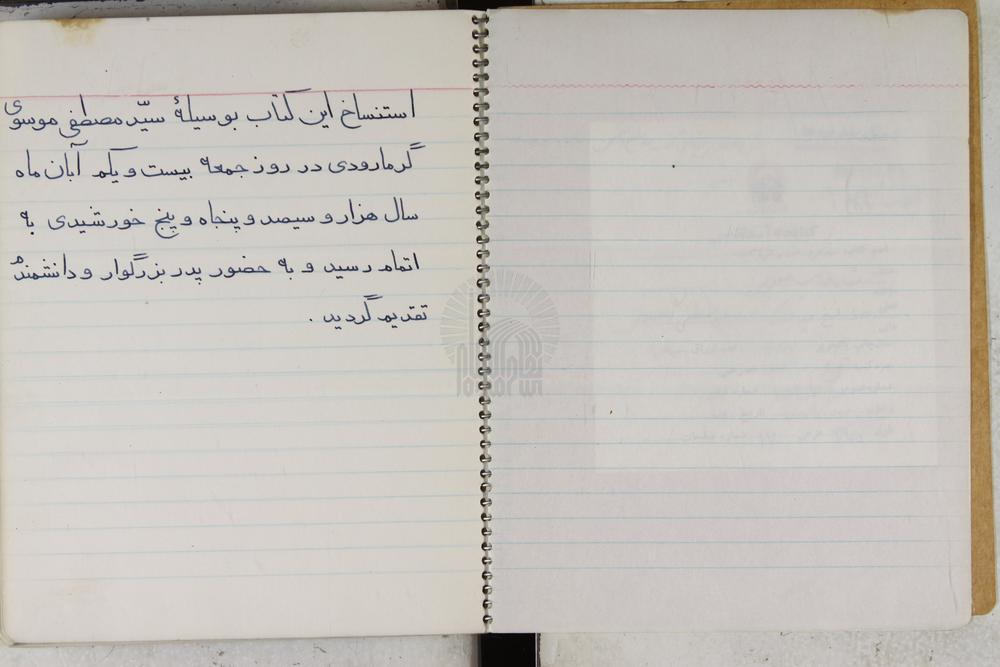 استنساخ این کتاب بوسیلهٔ سیّد مصطفی موسوی
گرمارودی در روز جمعه بیست و یکم آبان ماه
سال هزار و سیصد و پنجاه و پنج خورشیدی به
اتمام رسید و به حضور پدر بزرگوار و دانشمندم
تقدیم گردید .